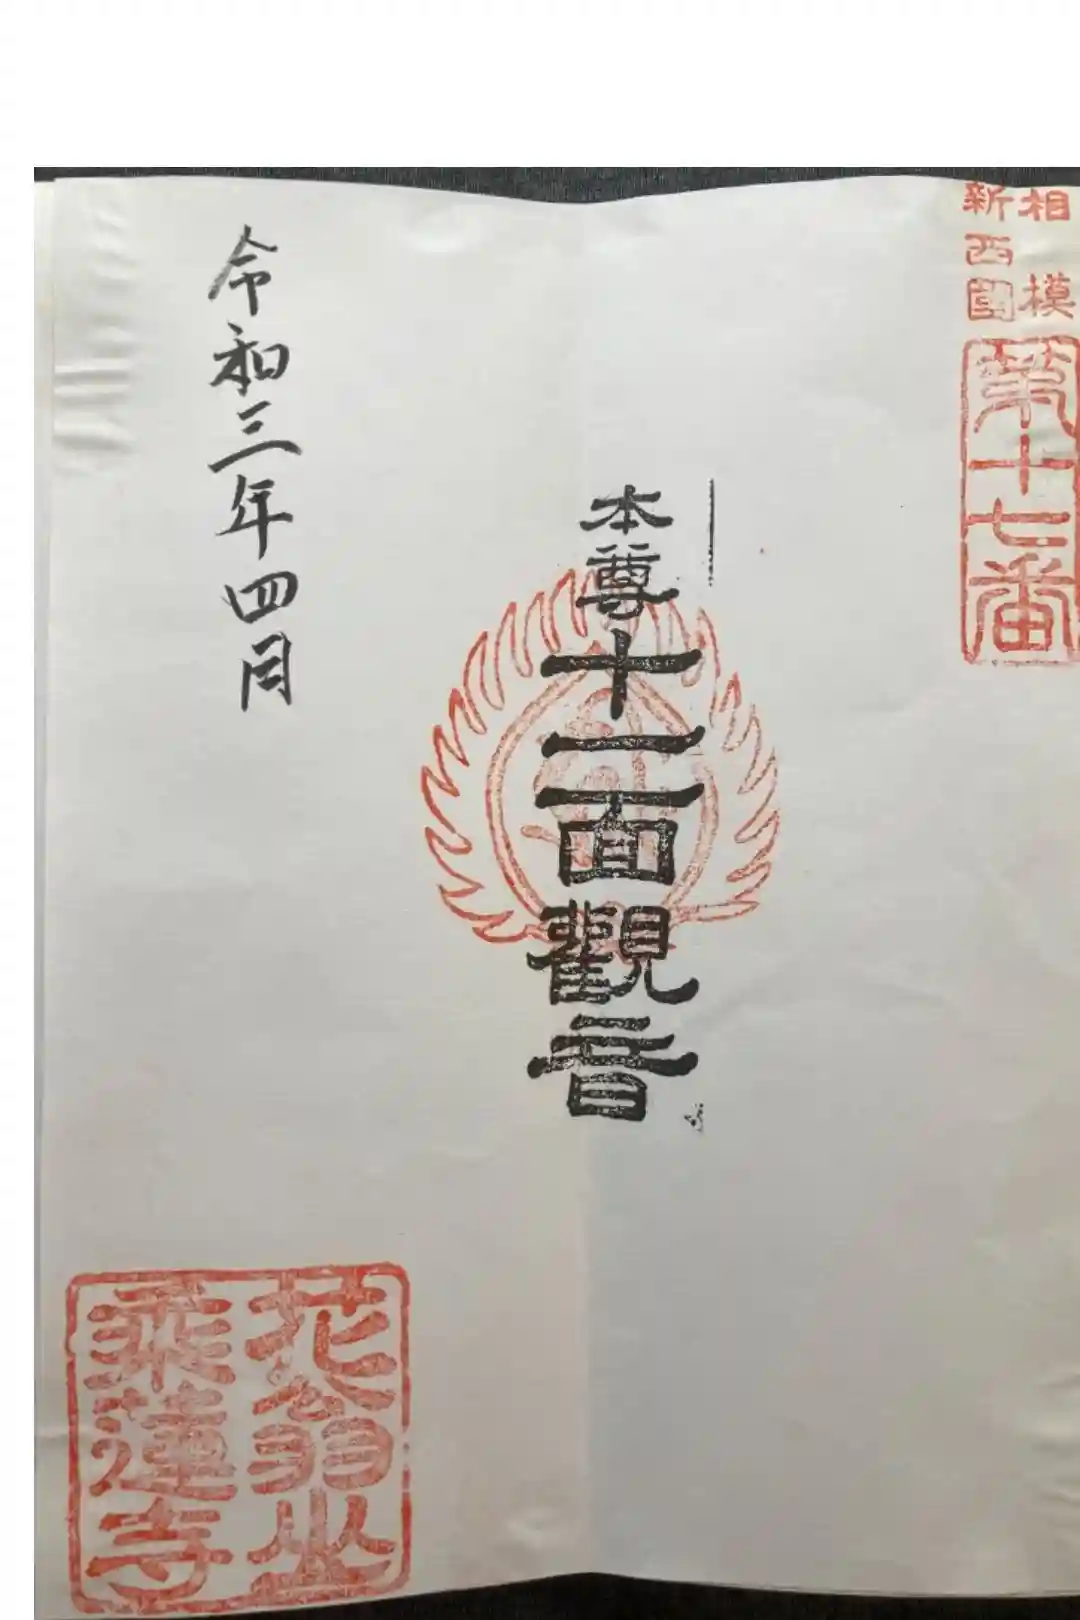 相模
新西國
第十七番
本尊
十一面觀音
令和三年四月
花翁
乘蓮寺